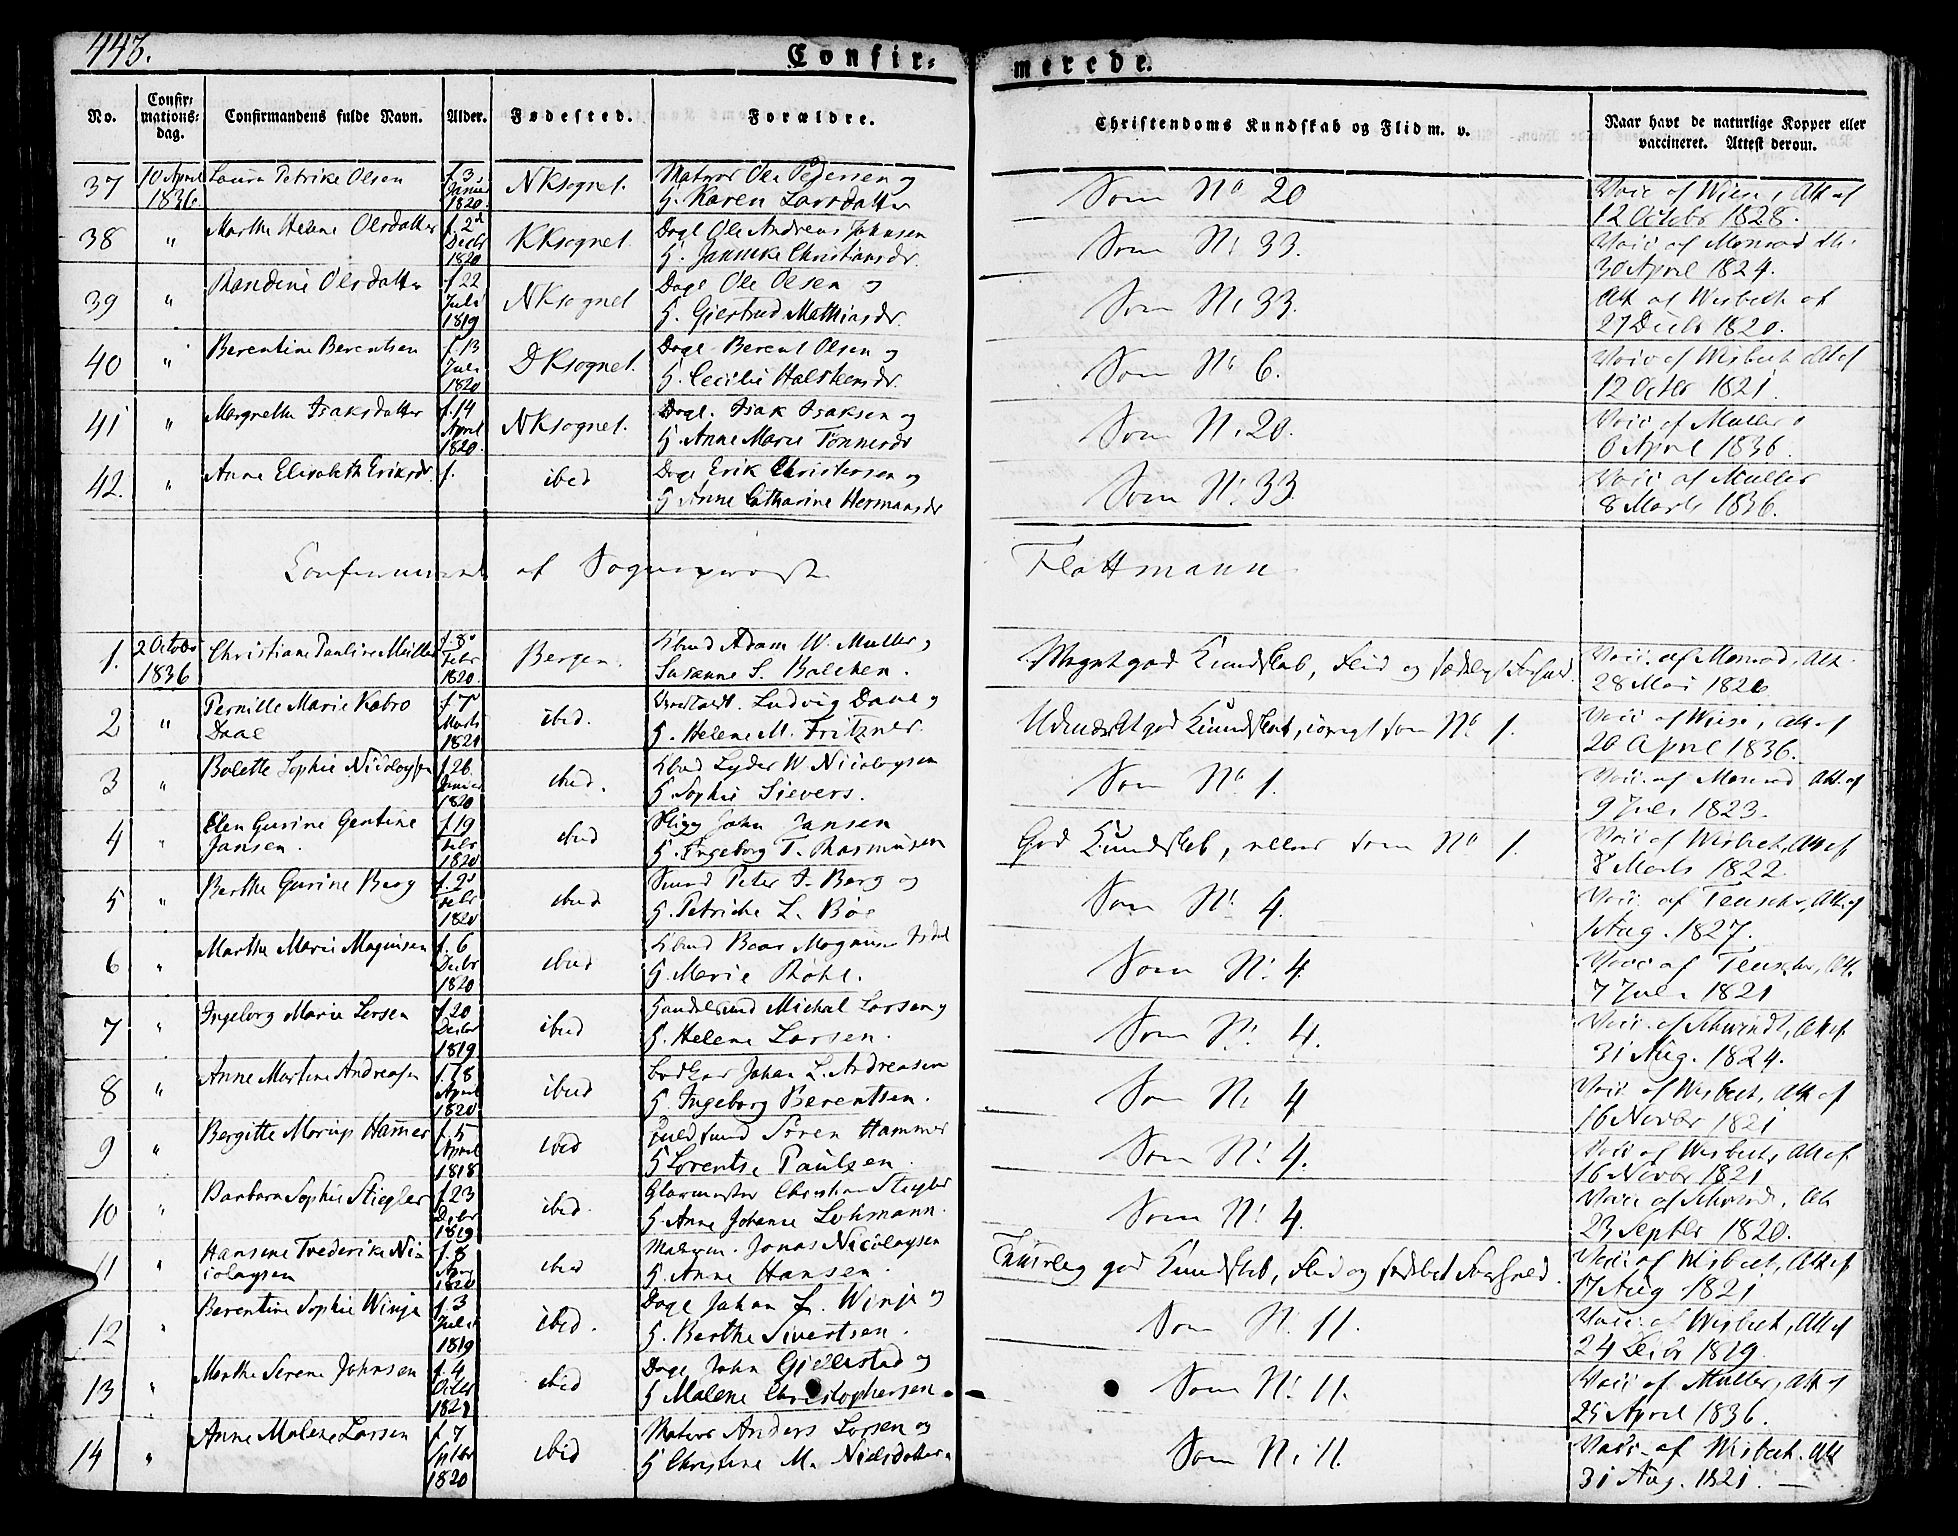 443.
Confir=
merede.
No.
Confir=
mations=
dag.
Confirmandens fulde Navn.
Alder.
Fødested.
Forældre.
Christendoms Kundskab og Flid m. v.
Naar havt de naturlige Kopper eller
vaccineret. Attest derom.
37 10 April 1836 Laura Petrike Olsen f. 3 1820. NKsognet. Matros Ole Pedersen og
H. Karen Larsdatter
Som No 20
Vacc af Wiese, Att af
12 Octobr 1828.
38 " Marthe Helene Olsdatter f. 2 Decbr 1820 KKsognet. Dagl Ole Andreas Johnsen
H. Janneke Christiansdr.
Som No 33.
Vacc af Monrad Att.
30 April 1824.
39 " Randine Olsdatter f. 22 Juli 1819 NKsognet Dagl Ole Olsen og
H. Giertrud Mathiasdr.
Som No 33.
Att af Wisbech af
27 Decbr 1820.
40 " Berentine Berentsen f. 13 Juli 1820 DKsognet. Dagl. Berent Olsen og
H. Cecilie Halsteensdr.
Som No 6.
Vacc af Wisbech Att af
12 Octbr 1821.
41 " Margrethe Isaksdatter f. 14 April 1820. NKsognet. Dagl. Isak Isaksen og
H Anne Marie Tønnesdr
Som No 20.
Vacc af Müller
6 April 1836.
42. " Anne Elisabeth Eriksdr. f. ibid Dagl Erik Christensen og
H Anne Catharine Hermansdr
Som No 33.
Vacc af Müller
8 Marts 1836.
af Sognepræst
Flottmann
1. 2 Octobr 1836 Christiane Pauline Müller f. 8 Febr 1820. Bergen. Adam W. Müller,
Susanne S. Balchen.
Meget god Kundskab, Flid og sædeligt Forhold.
Vacc. af Monrad, Att.
28 Mai 1826
2 " Pernille Marie Kabro
Daae f. 7 Marts 1821 ibid. Ludvig Daae og
H. Helene M. Fritzner.
Udmærket god Kundskab, iøvrigt som No 1.
Vacc af Wiese, Att af
20 April 1836.
3 " Bolette Sophie Nicolaysen f. 26 1820 ibid. Lyder W Nicolaysen
H Sophie Sievers.
Som No 1.
Vacc. af Monrad Att. af
9 Juli 1823.
4 " Elen Gurine Gentine
Jansen. f. 19 Febr 1820 ibid John Jansen
H. Ingeborg T. Rasmussen
God Kundskab, ellers som No 1.
Vacc af Wisbech, Att af
8 Marts 1822.
5 " Berthe Gurine Berg f. 2 Febr 1820 ibid Peter J. Berg og
H. Petriche L. Bøe
Som No 4.
Vacc. af Teuscher, Att. af
1 Aug. 1827.
6 " Marthe Marie Magnusen f. 6 Decbr 1820 ibid Baar Magnus Isdal
H. Marie Røhl.
Som No 4.
Vacc af Teuscher, Att.
7 Juli 1821
7 " Ingeborg Marie Larsen f. 20 Decbr 1819. ibid Michal Larsen og
H. Helene Larsen.
Som No 4.
Vacc. af Schwindt, Att af
31 Aug. 1824.
8 " Anne Martine Andreasen f. 18 April 1820 ibid Johan L. Andreasen
H. Ingeborg Berentsen.
Som No 4
Vacc af Wisbech, Att af
16 Novbr 1821
9 " Bergitte Marup Hammer f. 5 April 1818 ibid Guldsmed Søren Hammer
H Lorentse Paulsen.
Som No 4.
Vacc af Wisbech, Att af
16 Novbr 1821
10 " Barbara Sophie Stiegler f. 23 Decbr 1819 ibid. Glarmester Christian Stiegler
H. Anne Johanne Lohmann.
Som No 4.
Vacc af Schwindt, Att
23 Septbr 1820.
11 " Hansine Frederike Ni=
colaysen f. 8 1820 ibid Jonas Nicolaysen
H. Anne Hansen.
Temmelig god Kundskab, Flid og sædeligt Forhold.
Vacc af Wisbech, Att af
17 Aug 1821
12 " Berentine Sophie Winje f. 3 Juli 1819 ibid. Dagl Johan L. Winje og
H. Berthe Sivertsen.
Som No 11.
Vacc. af Wisbech, Att af
24 Decbr 1819.
13 " Marthe Serene Johnsen f. 4 Octbr 1821 ibid Dagl John Gjellestad og
H Malene Christophersen
Som No 11.
Vacc af Müller, Att af
25 April 1836.
14 " Anne Malene Larsen f. 7 Septbr 1820 ibid Matros Anders Larsen og
H Christine M. Nielsdatter
Som No 11.
Vacc. af Wisbech. Att
31 Aug. 1821.